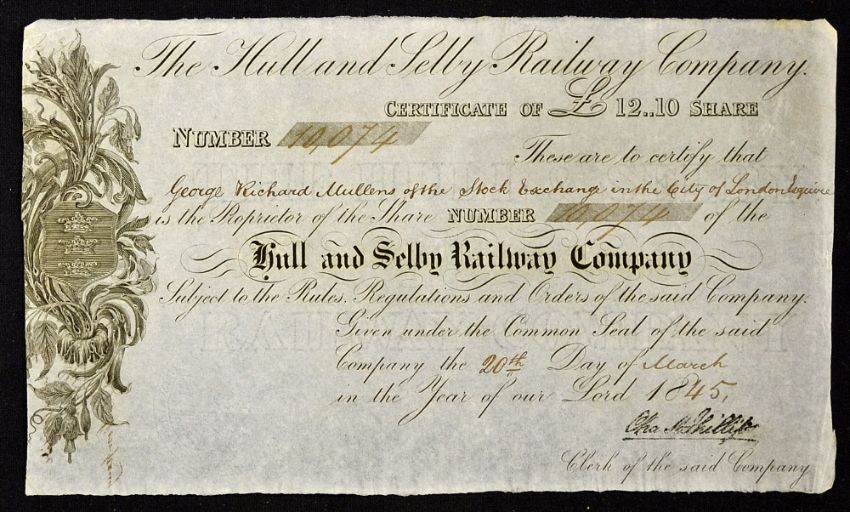 The Hull and Selby Railway Company.
CERTIFICATE OF £ 12..10 SHARE
NUMBER 10,074
These are to certify that
George Richard Mullens of the Stock Exchange in the City of London Esquire
is the Proprietor of the Share NUMBER 10,074 of the
Hull and Selby Railway Company
Subject to the Rules, Regulations and Orders of the said Company.
Given under the Common Seal of the said
Company the 20th Day of March
in the Year of our Lord 1845,
Phillips
Clerk of the said Company